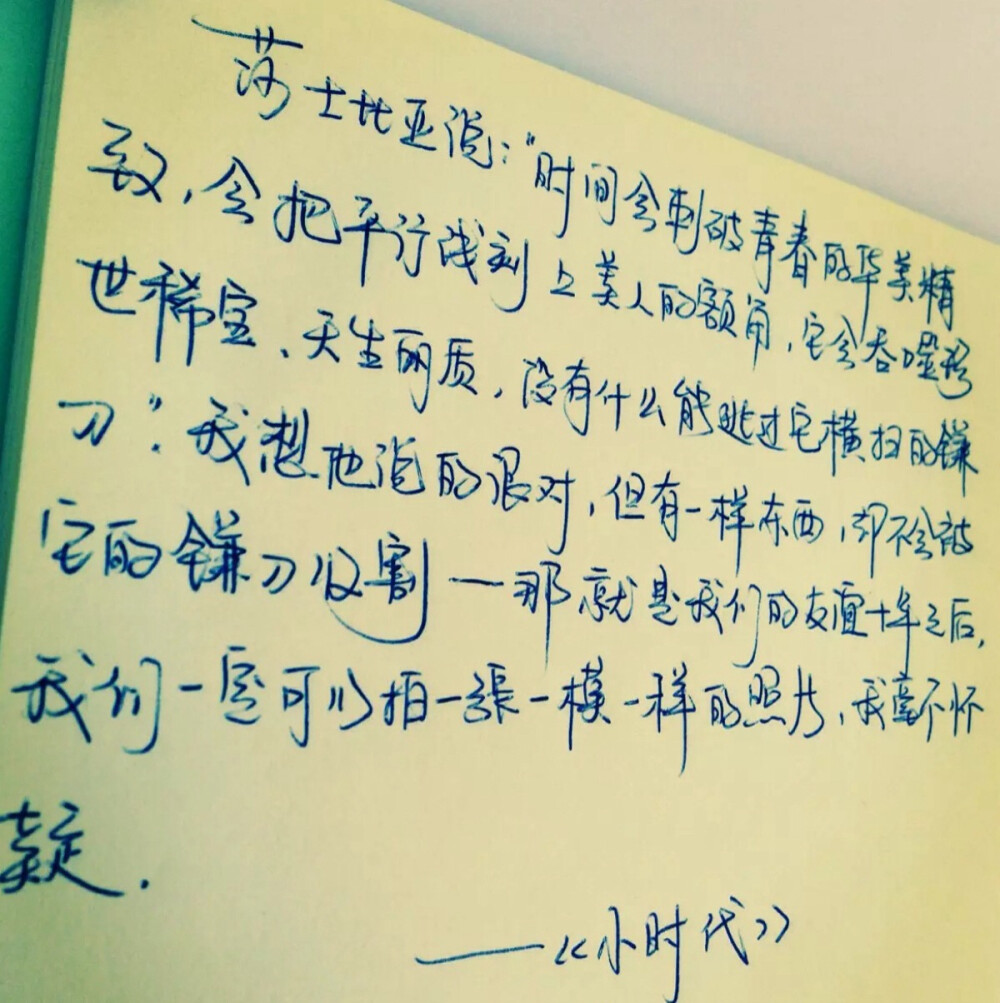 莎士比亚说："时间会刺破青春的华美精
致，会把平行线刻上美人的额角，它会吞噬稀
世稀宝、天生丽质，没有什么能逃过它横扫的镰
刀"。我想他说的很对，但有一样东西，却不会被
它的镰刀收割—那就是我们的友谊十年之后，
我们一定可以拍一張一模一样的照片，我毫不怀
疑.
——《小时代》